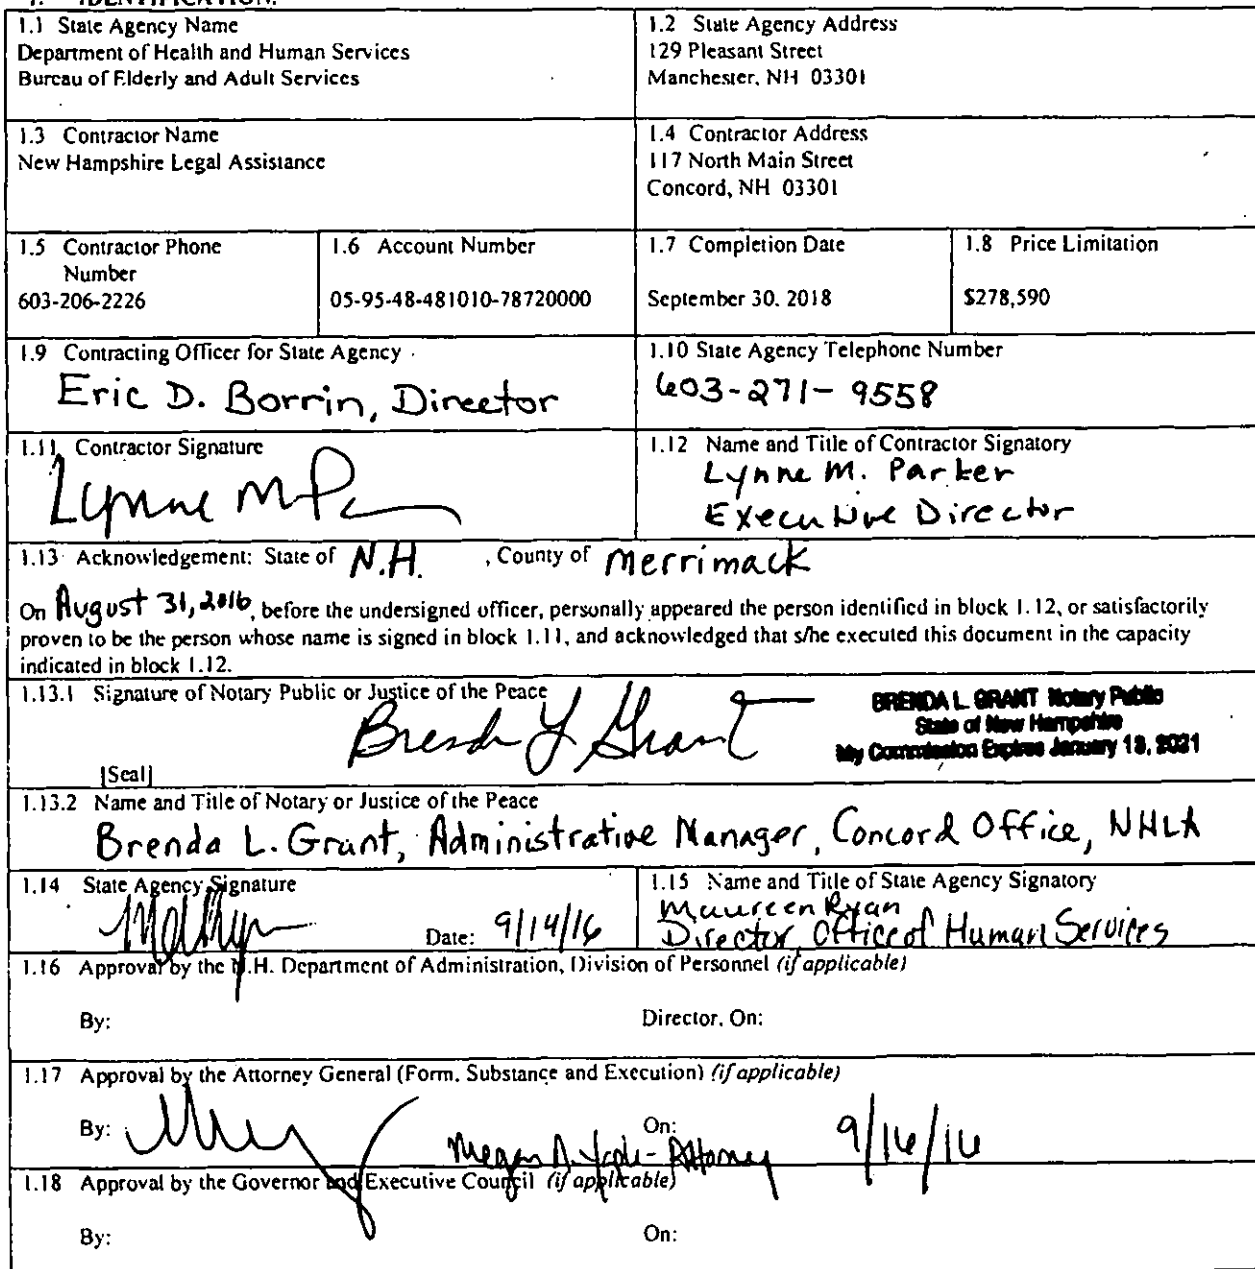 1. IDENTIFICATION.
1.1 State Agency Name
Department of Health and Human Services
Bureau of Elderly and Adult Services
1.2 State Agency Address
129 Pleasant Street
Manchester, NH 03301
1.3 Contractor Name
New Hampshire Legal Assistance
1.4 Contractor Address
117 North Main Street
Concord, NH 03301
1.5 Contractor Phone
Number
603-206-2226
1.6 Account Number
05-95-48-481010-78720000
1.7 Completion Date
September 30, 2018
1.8 Price Limitation
$278,590
1.9 Contracting Officer for State Agency
Eric D. Borrin, Director
1.10 State Agency Telephone Number
603-271-9558
1.11 Contractor Signature
Lynne M P
1.12 Name and Title of Contractor Signatory
Lynne M. Parker
Executive Director
1.13 Acknowledgement: State of N.H. , County of Merrimack
On August 31, 2016, before the undersigned officer, personally appeared the person identified in block 1.12, or satisfactorily
proven to be the person whose name is signed in block 1.11, and acknowledged that s/he executed this document in the capacity
indicated in block 1.12.
1.13.1 Signature of Notary Public or Justice of the Peace
Brenda L Grant
BRENDA L. GRANT Notary Public
State of New Hampshire
My Commission Expires January 13, 2021
[Seal]
1.13.2 Name and Title of Notary or Justice of the Peace
Brenda L. Grant, Administrative Manager, Concord Office, NHLA
1.14 State Agency Signature
Date: 9/14/16
1.15 Name and Title of State Agency Signatory
Maureen Ryan
Director Office of Human Services
1.16 Approval by the N.H. Department of Administration, Division of Personnel (if applicable)
By:
Director, On:
1.17 Approval by the Attorney General (Form, Substance and Execution) (if applicable)
By:
On:
Megan A. - Attorney 9/16/16
1.18 Approval by the Governor and Executive Council (if applicable)
By:
On: